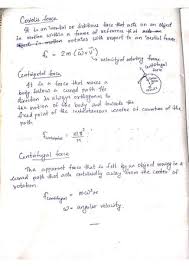 Coriolis force
It is an inertial or fictitious force that acts on an object
in motion within a frame of reference that
rotates with respect to an inertial frame
F = 2m (ω × v)
velocity of rotating frame
Centripetal force
Centrifugal force
It is a force that makes a
body follow a curved path. Its
direction is always orthogonal to
the motion of the body and towards the
fixed point of the instantaneous center of curvature of the
path.
F centripetal = mv²/r
Centrifugal force
The apparent force that is felt by an object moving in a
curved path that acts outwardly away from the center of
rotation.
F centrifugal = mω²r
ω = angular velocity.